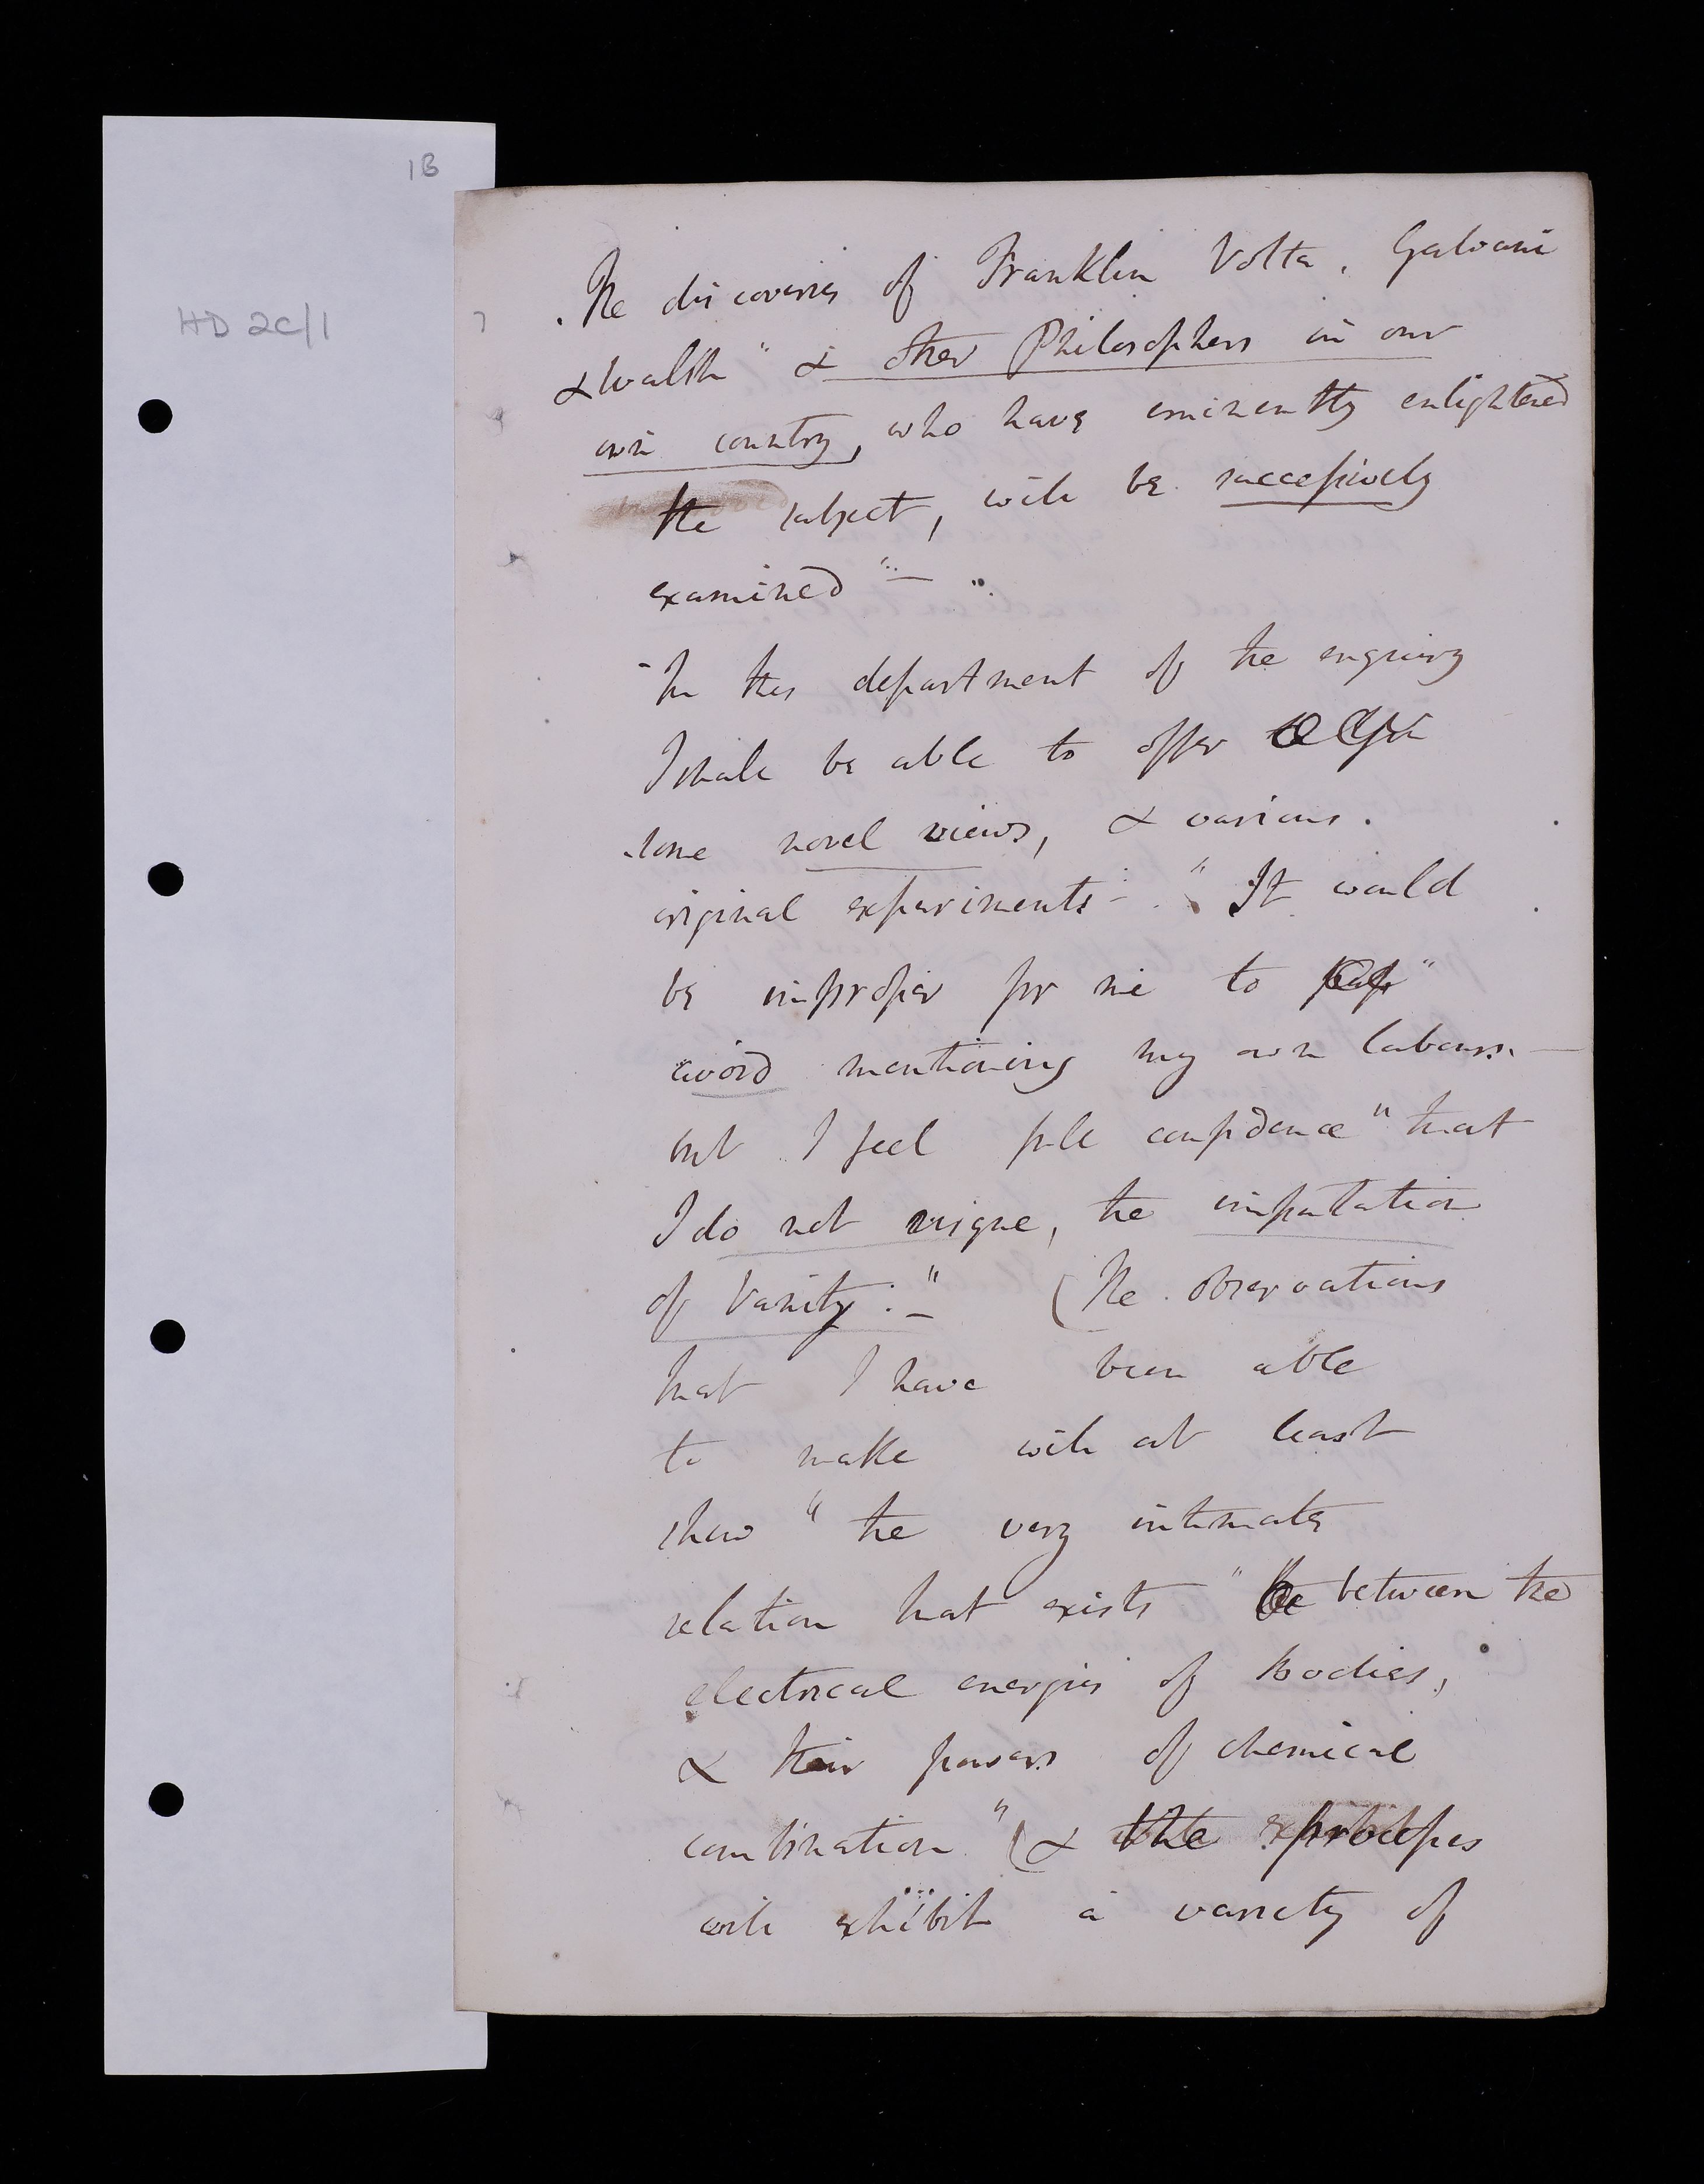 1B
HD 2C/1
7
The discoveries of Franklin Volta, Galvani
& Walsh" & other Philosophers in our
own country, who have eminently enlightened
the subject, will be successively
examined" —
- In this department of the enquiry
I shall be able to offer
some novel views, & various
original experiments - " It would
be improper for me to
avoid mentioning my own labours. —
but I feel full confidence" that
I do not risque, the imputation
of Vanity:" — (The observations
that I have been able
to make will at least
shew " the very intimate
relation that exists " between the
electrical energies of bodies,
& their powers of chemical
combination" (& the processes
will exhibit a variety of